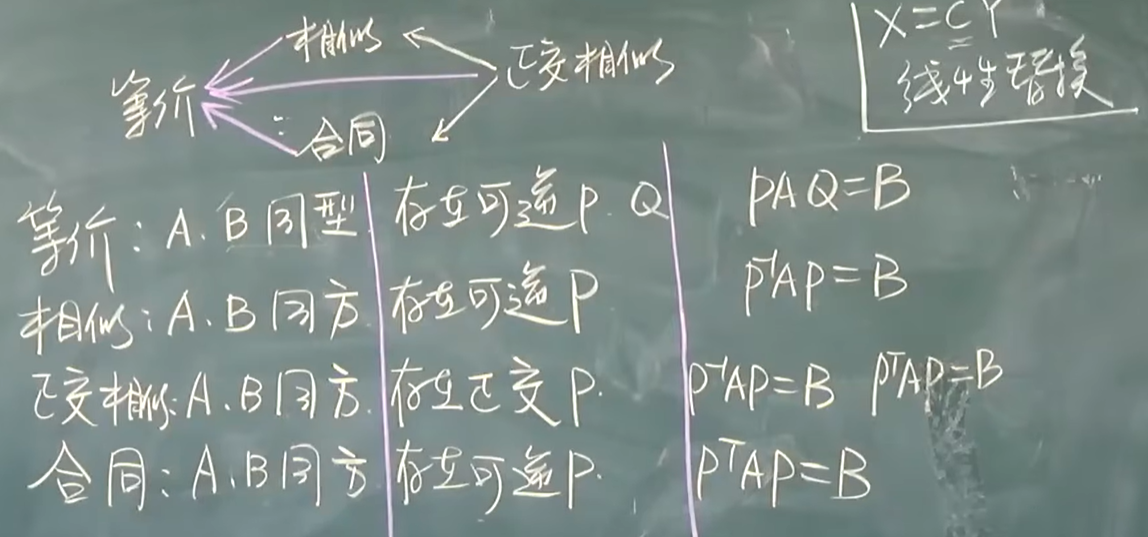 相似
正交相似
等价
合同
X=CY
线性替换
等价:A.B同型 存在可逆P.Q PAQ=B
相似:A.B同方 存在可逆P P⁻¹AP=B
正交相似:A.B同方. 存在正交P. P⁻¹AP=B PᵀAP=B
合同:A.B同方 存在可逆P. PᵀAP=B